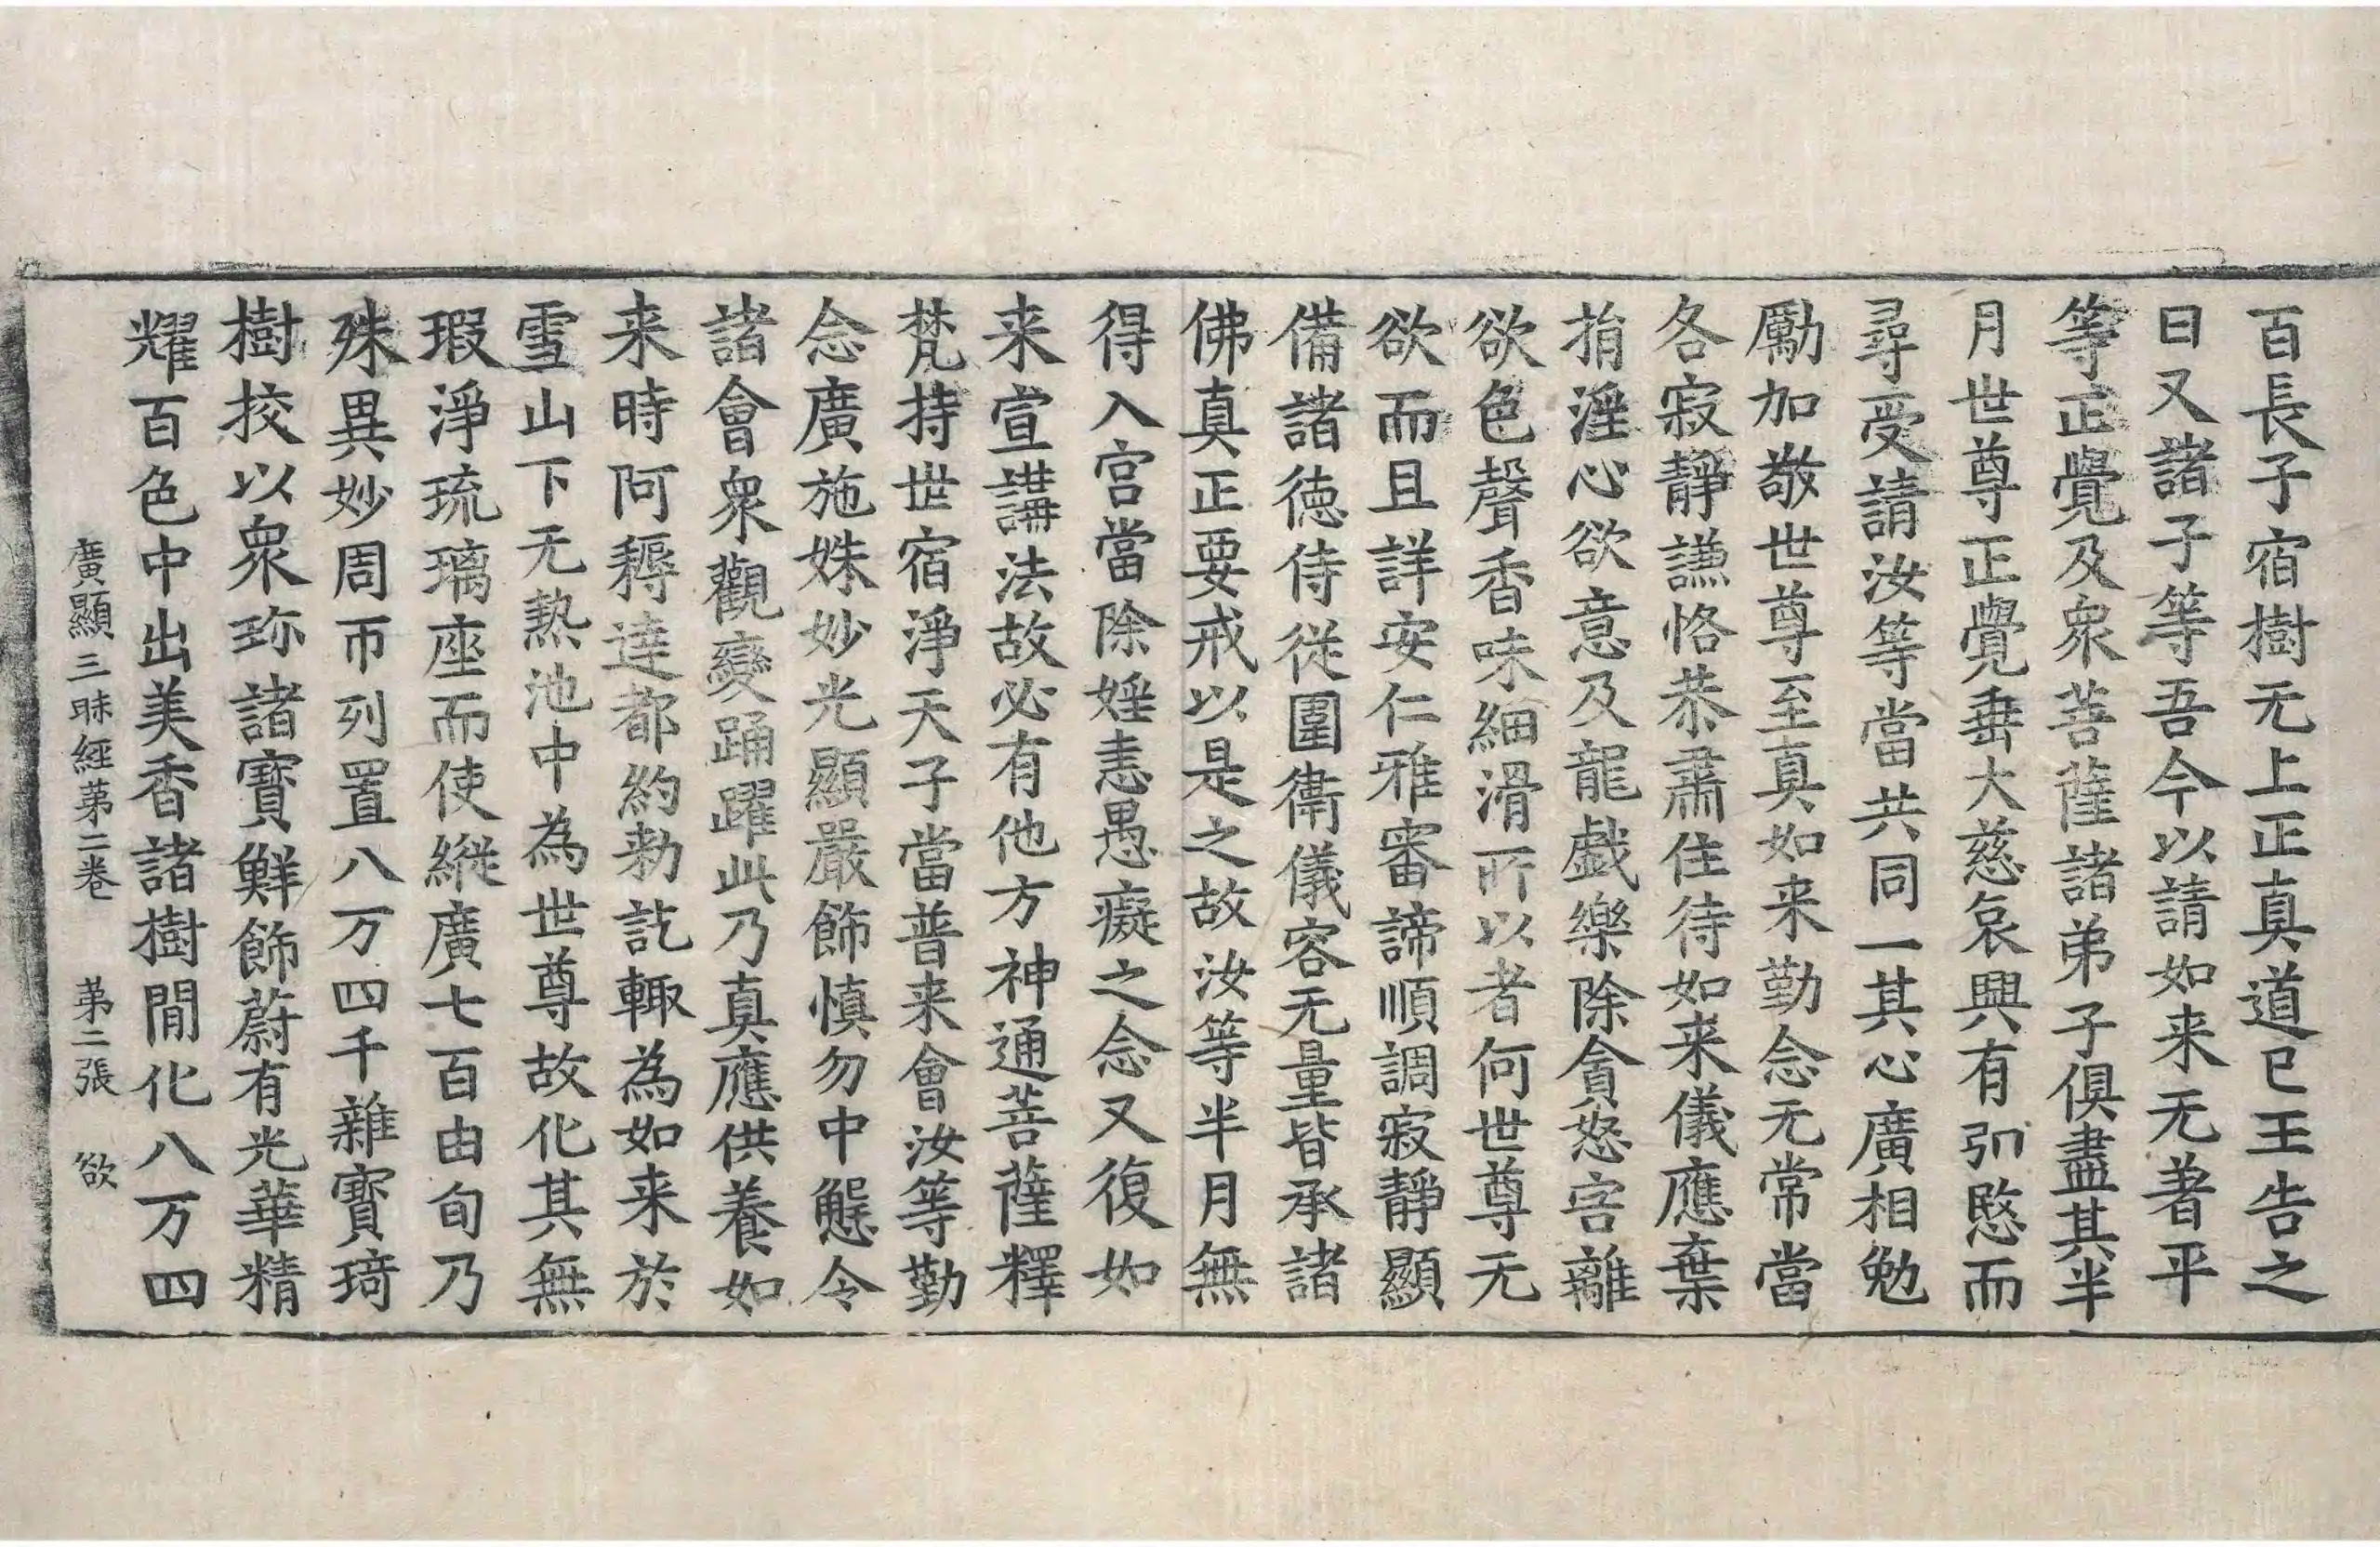 百長子宿樹无上正真道已王告之
曰又諸子等吾今以請如来无著平
等正覺及衆菩薩諸弟子俱盡其半
月世尊正覺垂大慈哀興有引愍而
尋受請汝等當共同一其心廣相勉
勵加敬世尊至真如来勤念无常當
各寂靜謙恪恭肅住待如来儀應棄
捐婬心欲意及龍戲樂除貪怒害離
欲色聲香味細滑所以者何世尊无
欲而且詳安仁雅審諦順調寂靜顯
備諸德侍從圍衛儀容无量皆承諸
佛真正要戒以是之故汝等半月無
得入宮當除婬恚愚癡之念又復如
来宣講法故必有他方神通菩薩釋
梵持世宿淨天子當普来會汝等勤
念廣施姝妙光顯嚴飾慎勿中懈令
諸會衆觀變踊躍此乃真應供養如
来時阿耨達都約勑訖輙為如来於
雪山下无熱池中為世尊故化其無
瑕淨琉璃座而使縱廣七百由旬乃
殊異妙周帀列置八万四千雜寶琦
樹挍以衆珎諸寶鮮飾蔚有光華精
耀百色中出美香諸樹間化八万四
廣顯三昧經第二卷　第二張　欲